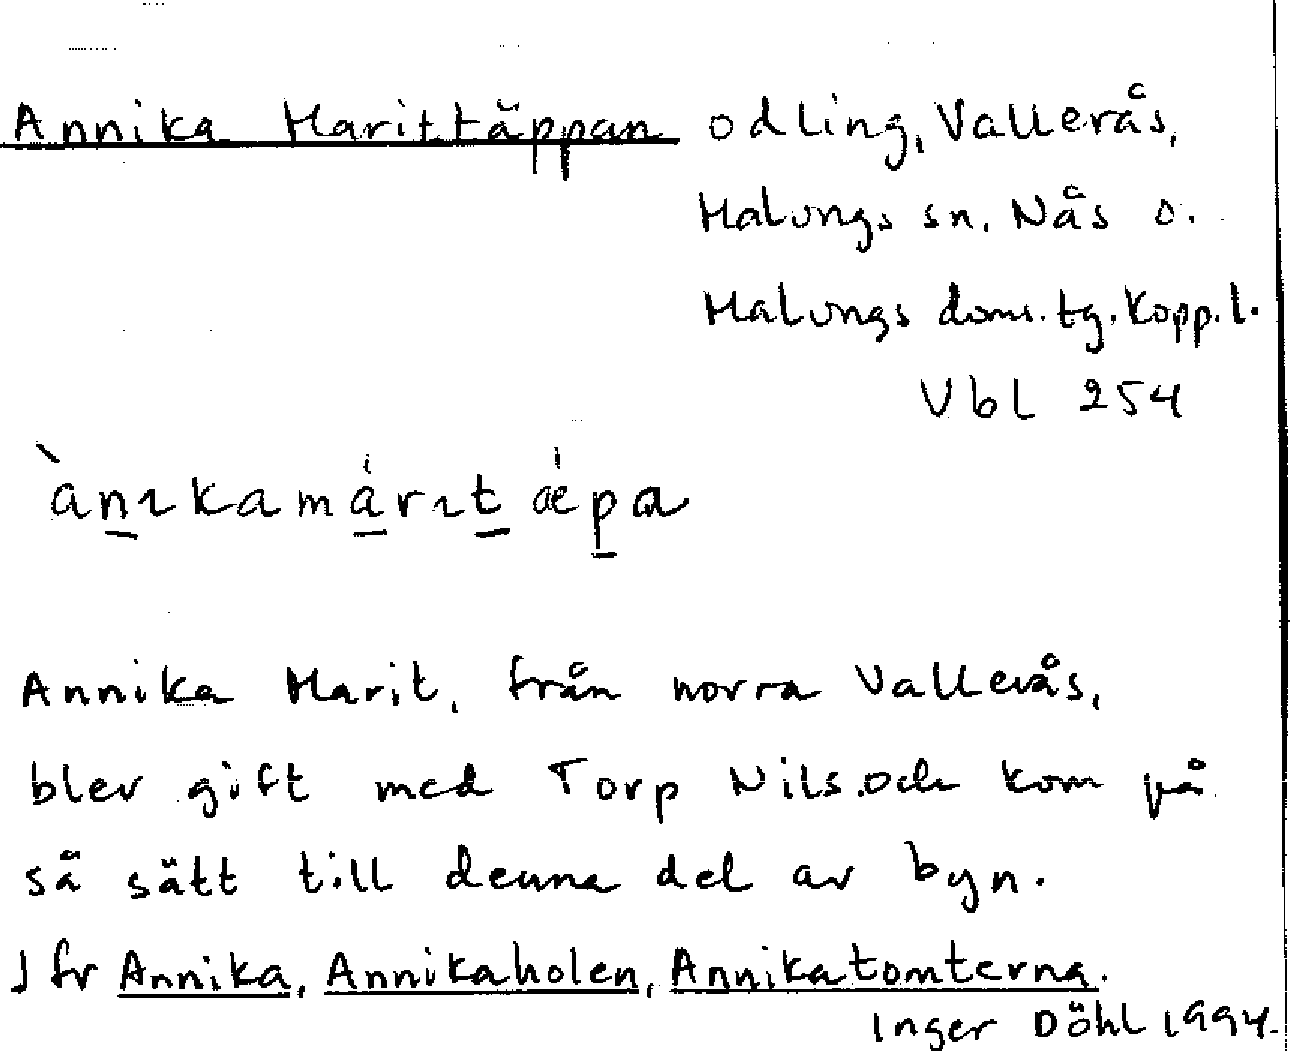 Annika Marittäppan odling, Vallerås,
Malungs sn. Nås o.
Malungs doms.tg. Kopp.l.
Vbl 254
ànıkamárıt ǽpa
Annika Marit, från norra Vallerås,
blev gift med Torp Nils och kom på
så sätt till denna del av byn.
Jfr Annika, Annikaholen, Annikatomterna.
Inger Döhl 1994.